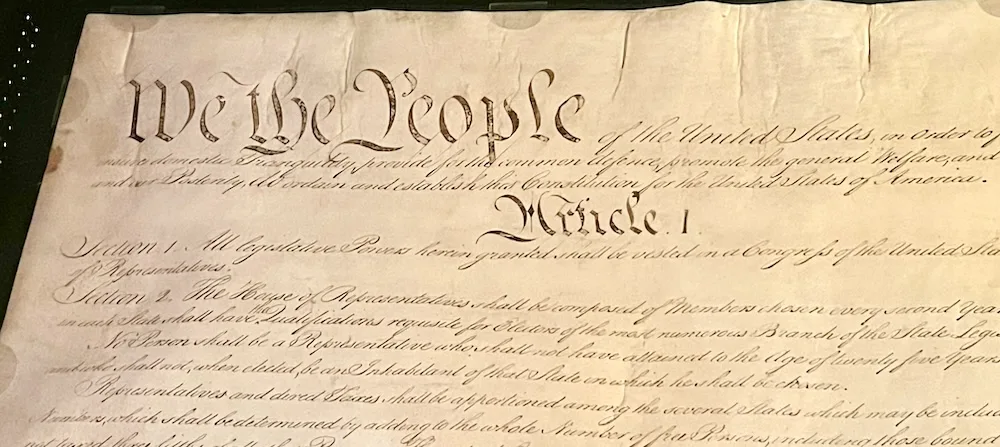 We the People of the United States, in order to
insure domestic Tranquility, provide for the common defence, promote the general Welfare, and
and our Posterity, do ordain and establish this Constitution for the United States of America.
Article. I.
Section 1. All legislative Powers herein granted shall be vested in a Congress of the United
of Representatives.
Section 2. The House of Representatives shall be composed of Members chosen every second Year
in each State shall have the Qualifications requisite for Electors of the most numerous Branch of the State
No Person shall be a Representative who shall not have attained to the Age of twenty five Years
and who shall not, when elected, be an Inhabitant of that State in which he shall be chosen.
Representatives and direct Taxes shall be apportioned among the several States which may be
Numbers, which shall be determined by adding to the whole Number of free Persons, including those